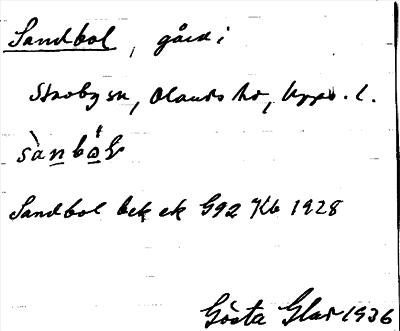 Sandbol, gård i
Stavby sn, Olands hd, Upps. l.
sànbó̀ɫ
Sandbol bek ek G92 Kb 1928
Gösta Glas 1936